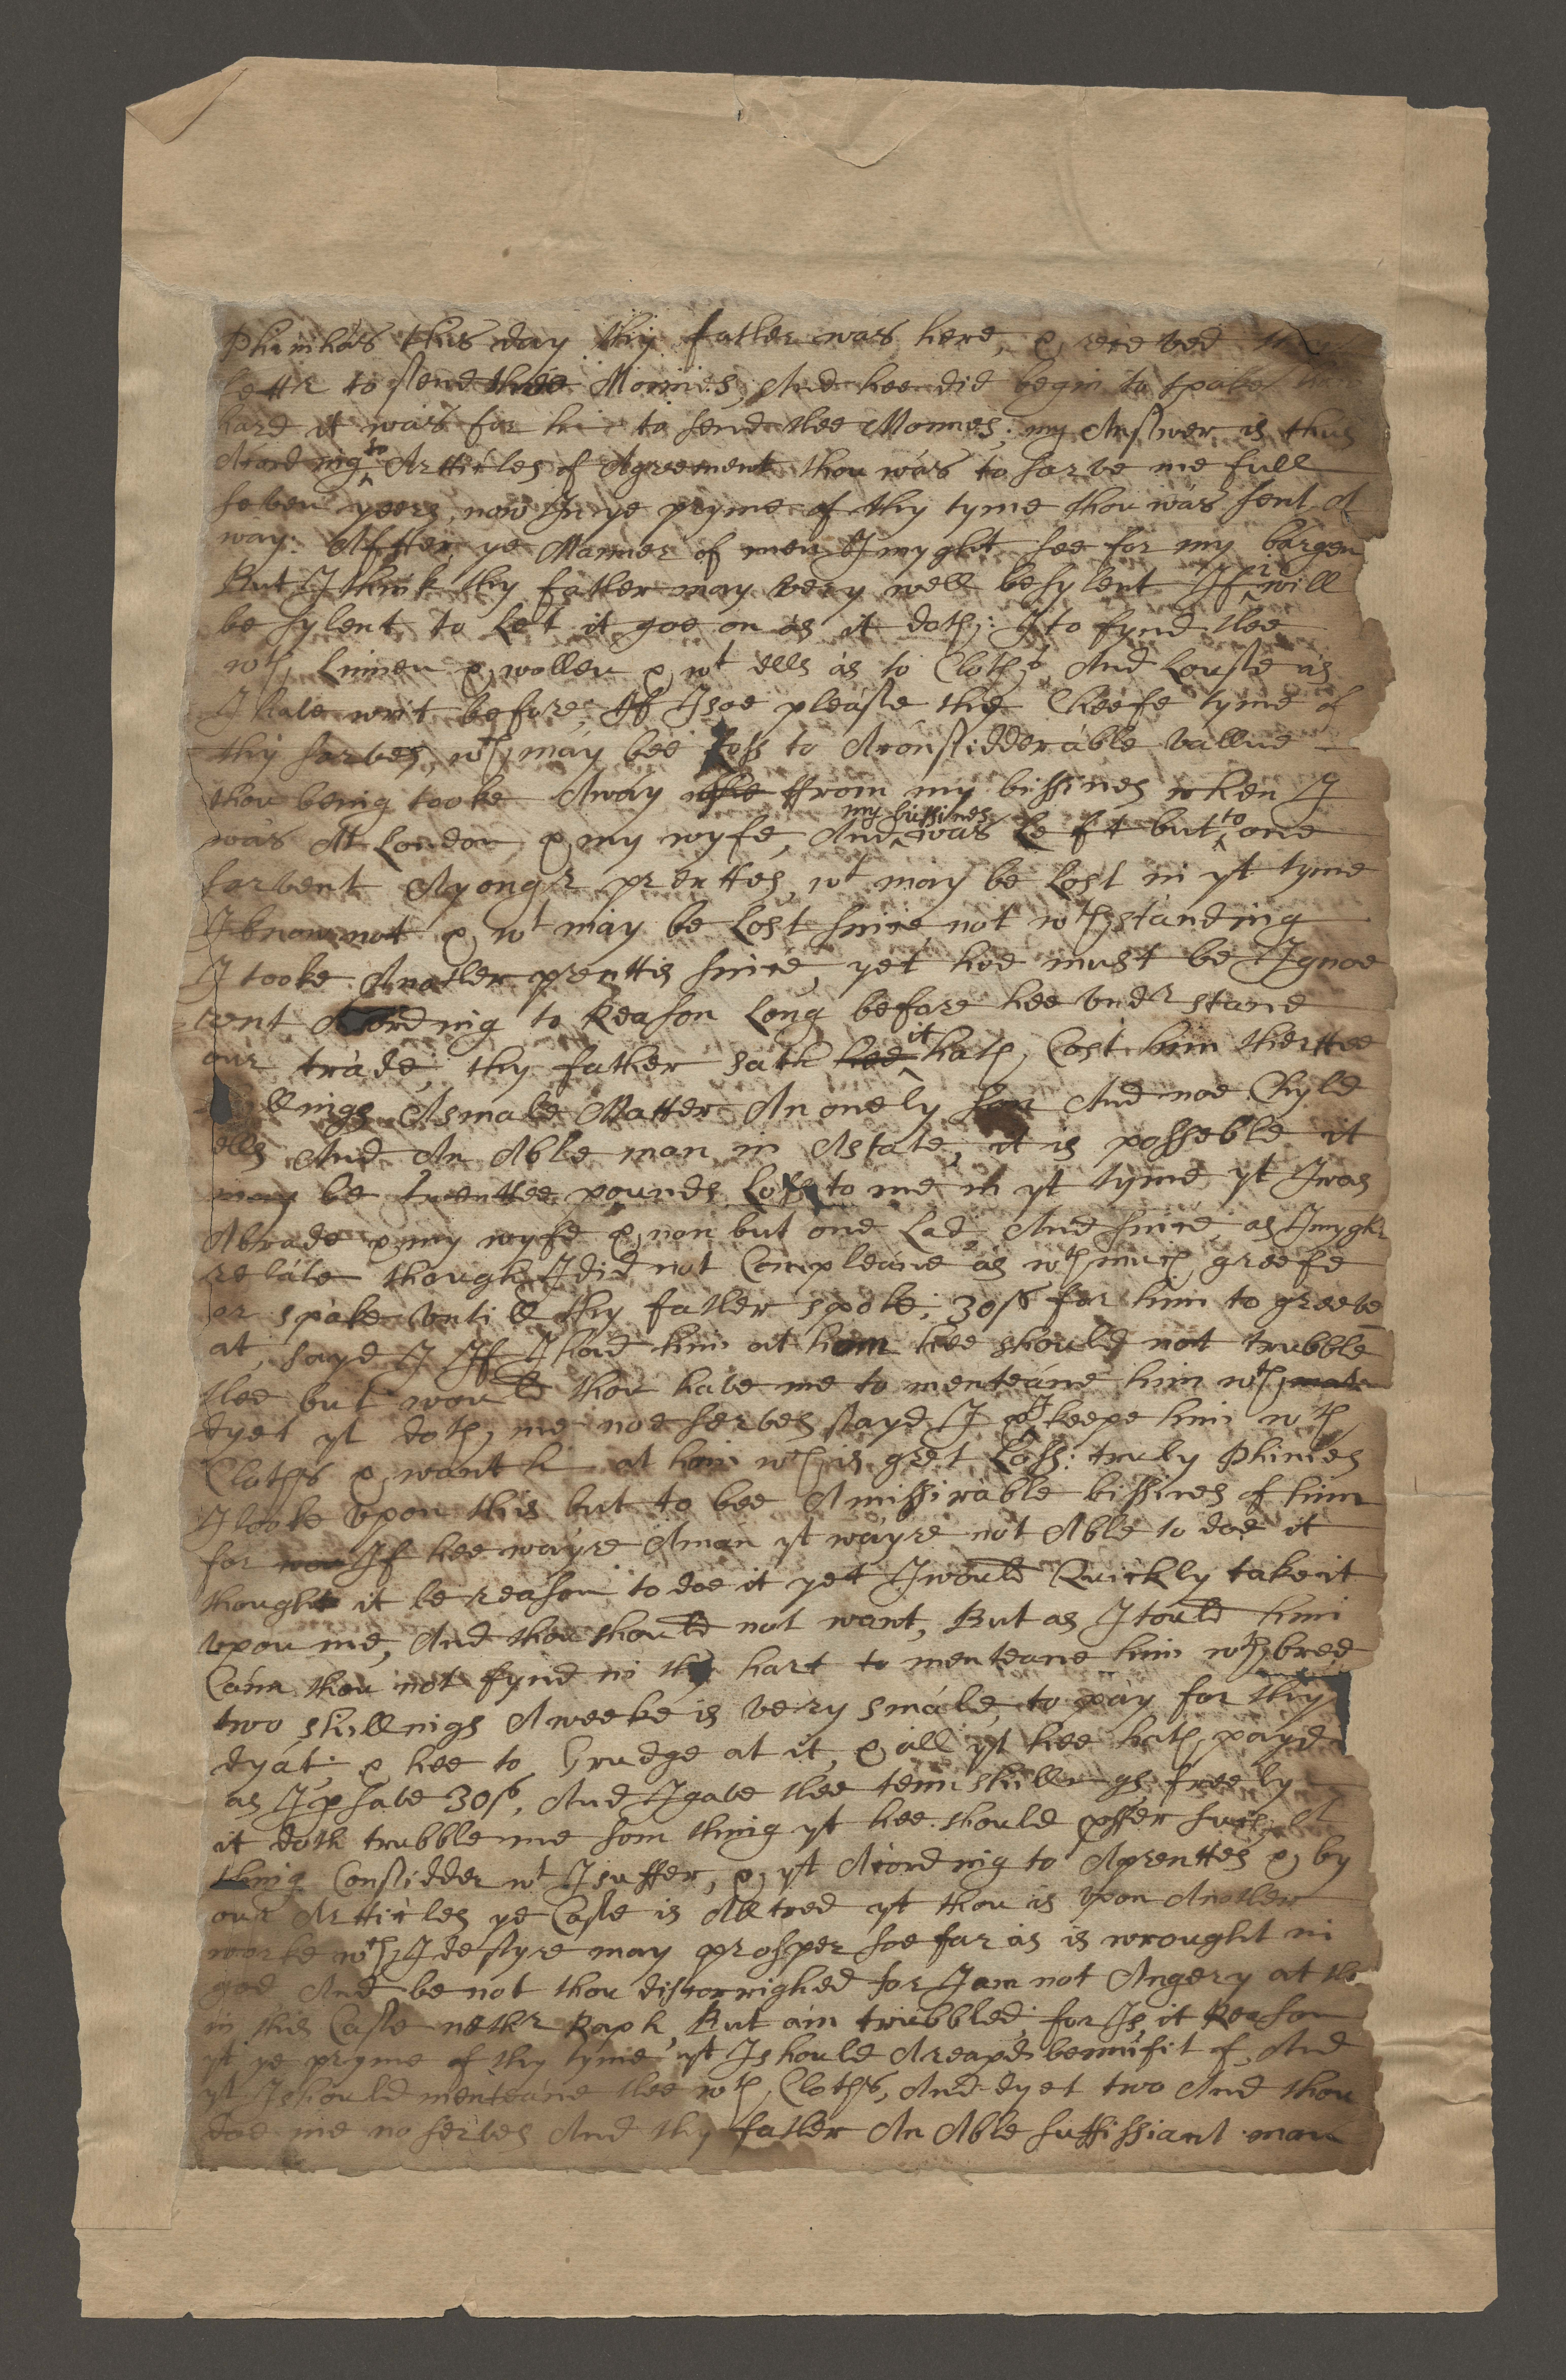 Phinihas this day thy father was here, & receved thy
lettr to send thee Monnies, And hee did begin to speake how
hard it was for hi to send thee Monnes; my Answer is thus
Acording to Artticles of Agreement thou was to sarve me full
seven yeers, now In ye pryme of thy tyme thou was sent A
way. Affter ye Manner of men I myght see for my bargen
But I think thy father may very well be sylent If I will
be sylent to Let it goe on as it doth; I to fynd thee
wth Linnen & wollen & wt ells as to Cloths And Louse as
I have writ before, If I soe please the Cheefe tyme of
thy sarves, wch may bee Loss to A considderable vallue
thou being tooke Away from my bissines when I
was At London, & my wyfe, And my bussines was Left but to one
sarvent A yongr prenttes, wt may be Lost in yt tyme
I know not & wt may be Lost since not wthstanding
I tooke Another prenttis since, yet hee must be Ignoe
rent Acording to Reason Long before hee undrstand
our trade, thy father sath hee it hath Cost him therttee
llings A smale Matter An onely son And noe Chyld
ells And An Able man in Astate, it is posseble it
may be twenttee pounds Loss to me in yt tyme yt I was
Abrade & my wyfe & non but one Lad, And since as I myght
relate though I did not Compleane as wth much greefe
or speake untill thy father spoke; 30s for him to greeve
at, sayd I If I had him at hom hee should not trubble
thee but would thou have me to menteane him wth
dyet yt doth me noe serves sayd I & I keepe him wth
Cloths & want h at hom wch is gret Loss: truly Phinies
I looke upon this but to bee A missirable bissines of him
for If hee wayre A man yt wayre not Able to doe it
thought it be reason to doe it yet I would Quickly take it
upon me, And thou should not want, But as I tould him
Cann thou not fynd in thy hart to menteane him wth bred
two shillings A weeke is very smale, to pay for thy
dyat; & hee to Grudge at it, & all yt hee hath payd
as I phave 30s, And I gave thee tenn shillings freely
it doth trubble me som thing yt hee should offer such A
thing Considder wt I suffer, & yt Acording to Aprenttes & by
our Artticles ye Case is Alltred yt thou is upon Another
worke wch I desyre may prosper soe far as is wrought in
god And be not thou discorrighed for I am not Angery at the
in this Case nethr Raph But am trubbled; for Is it Reason
yt ye pryme of thy tyme yt I should A reaped bennifit of, And
yt I should menteane thee wth Cloths, And dyet two And thou
doe me no serves And thy father An Able suffissiant man